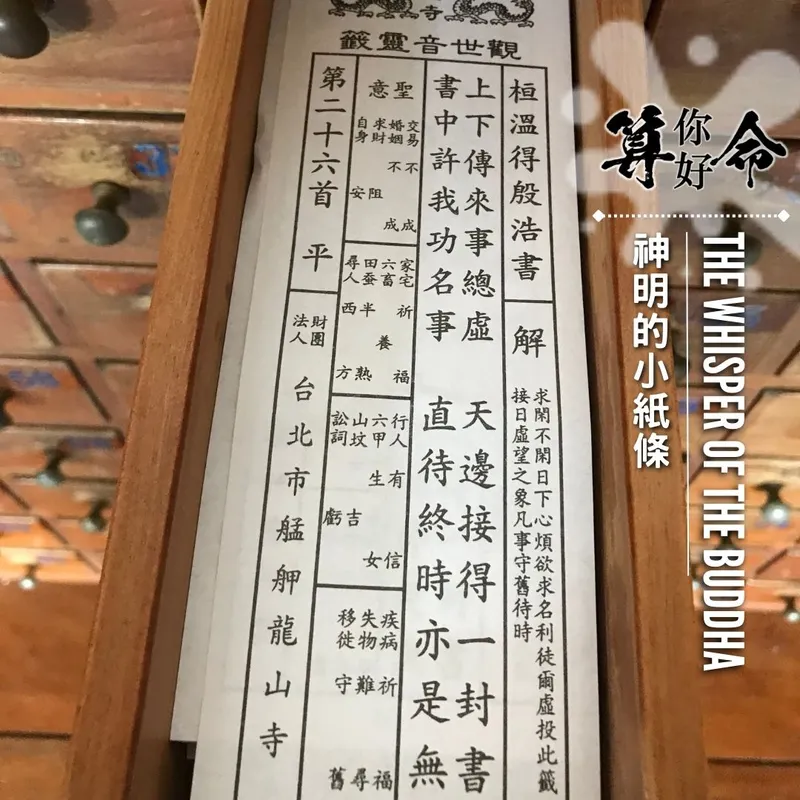 寺
觀世音靈籤
桓溫得殷浩書
解
求閑不閑日下心煩欲求名利徒爾虛投此籤
接日虛望之象凡事守舊待時
上下傳來事總虛 天邊接得一封書
書中許我功名事 直待終時亦是無
聖意
交易不成
婚姻不成
求財阻
自身安
家宅祈福
六畜養
田蚕半熟
尋人西方
行人有信
六甲生女
山墳吉
訟詞虧
疾病祈福
失物難尋
移徙守舊
第二十六首 平
財團法人
台北市艋舺龍山寺
算你好命
THE WHISPER OF THE BUDDHA
神明的小紙條